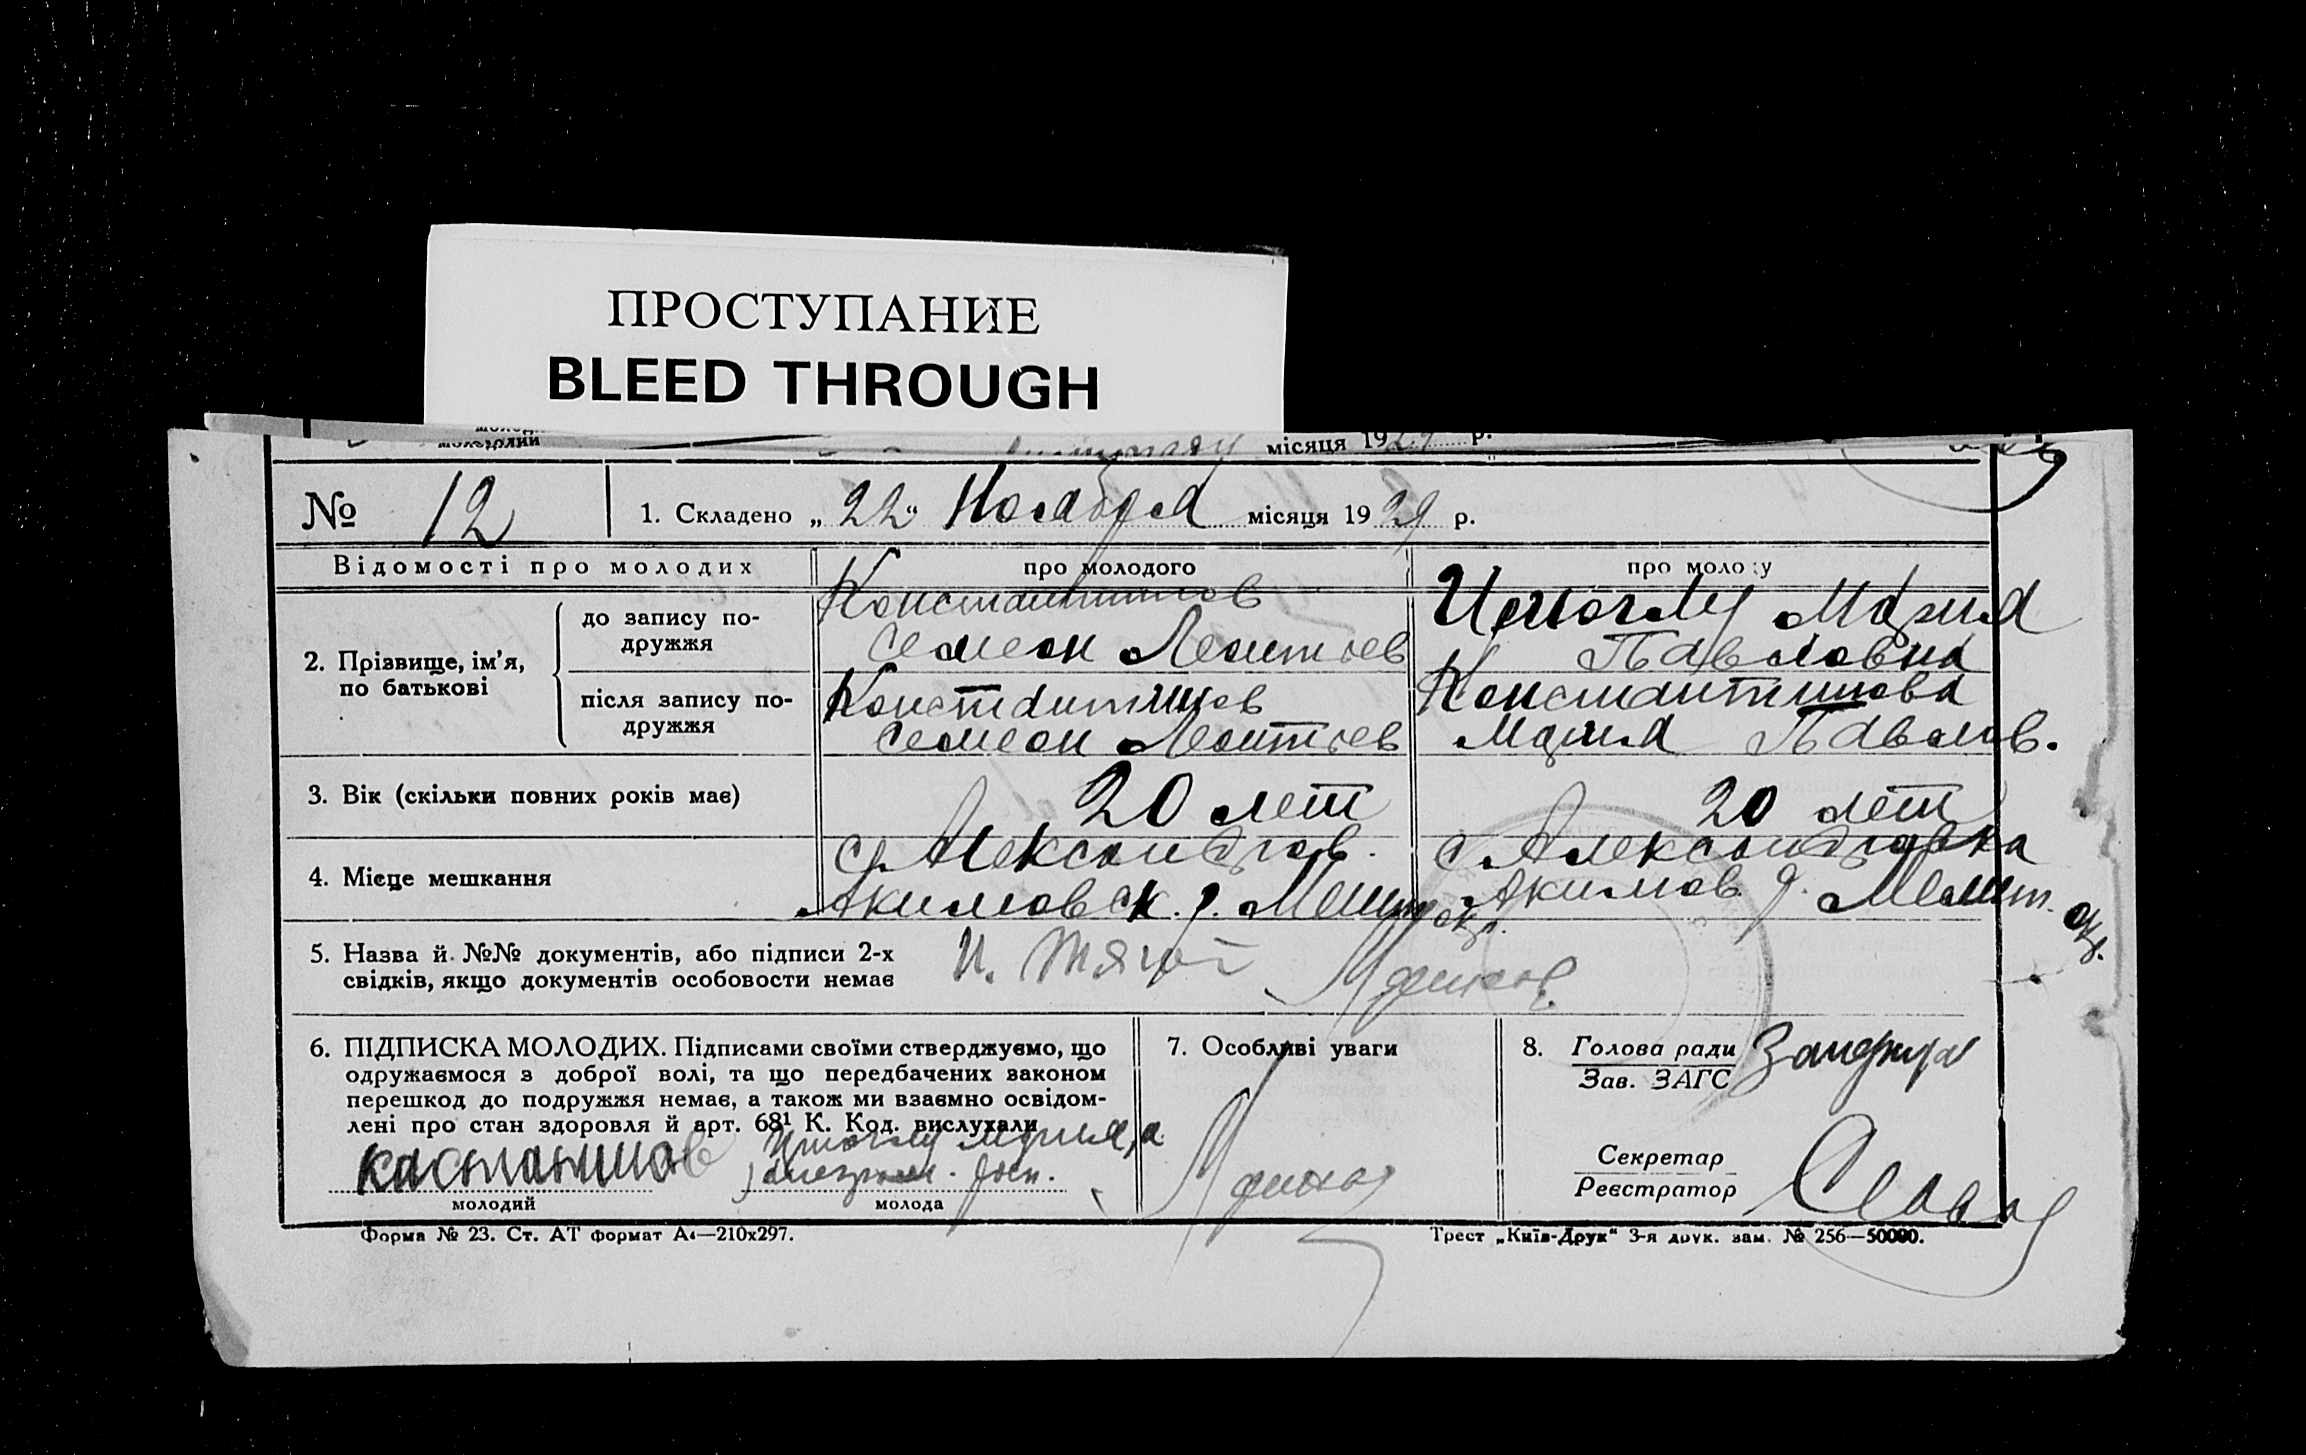 ПРОСТУПАНИЕ
BLEED THROUGH
місяця 1929 р.
№ 12
1. Складено „22" Ноября місяця 1929 р.
Відомості про молодих
про молодого
про молоду
2. Прізвище, ім'я, по батькові
до запису подружжя
Константинов
Семеон Леонтьев
Мария
Павловна
після запису подружжя
Константинов
Семеон Леонтьев
Константинова
Мария Павлов.
3. Вік (скільки повних років має)
20 лет
20 лет
4. Місце мешкання
с. Александров.
Акимовск. р. Мелит
с. Александровка
Акимов. р. Мелит. окр.
5. Назва й №№ документів, або підписи 2-х
свідків, якщо документів особовости немає
6. ПІДПИСКА МОЛОДИХ. Підписами своїми стверджуємо, що
одружаємося з доброї волі, та що передбачених законом
перешкод до подружжя немає, а також ми взаємно освідом-
лені про стан здоровля й арт. 68¹ К. Код. вислухали
молодий
молода
7. Особливі уваги
8. Голова ради
Зав. ЗАГС
Секретар
Реєстратор
Форма № 23. Ст. АТ формат А4—210х297.
Трест „Київ-Друк" 3-я друк. зам. № 256—50000.